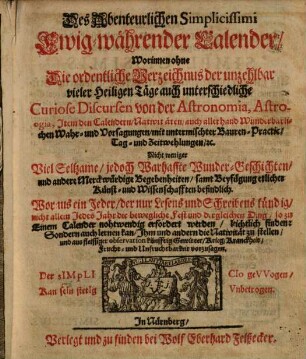 Des Abenteurlichen Simplicissimi
Ewig-währender Calender/
Worinnen ohne
Die ordentliche Verzeichnus der unzehlbar
vieler Heiligen Täge auch unterschiedliche
Curiose Discursen von der Astronomia, Astro-
logia, Item den Calendern/ Nativitäten/ auch allerhand Wunderbarli-
chen Wahr- und Vorsagungen/ mit untermischter Bauren-Practic/
Tag- und Zeitwehlungen/ &c.
Nicht weniger
Viel Seltzame/ jedoch Warhaffte Wunder-Geschichten/
und andere Merckwürdige Begebenheiten/ samt Beyfügung etlicher
Künst- und Wissenschafften befindlich.
Vor uns ein Jeder/ der nur Lesens und Schreibens kündig/
nicht allein Jedes Jahr die bewegliche Fest und dergleichen Ding/ so zu
Einem Calender nohtwendig erfordert werden/ leichtlich finden:
Sondern auch lernen kan/ Ihm und andern die Nativität zu stellen/
und aus fleissiger observation künfftig Gewitter/ Krieg/ Kranckheit/
Frucht- und Unfruchtbarkeit vorzusagen.
Der sIMpLI CIo geVVogen/
Kan seln
In Nürnberg/
Verlegt und zu finden bei Wolf Eberhard Felßecker.